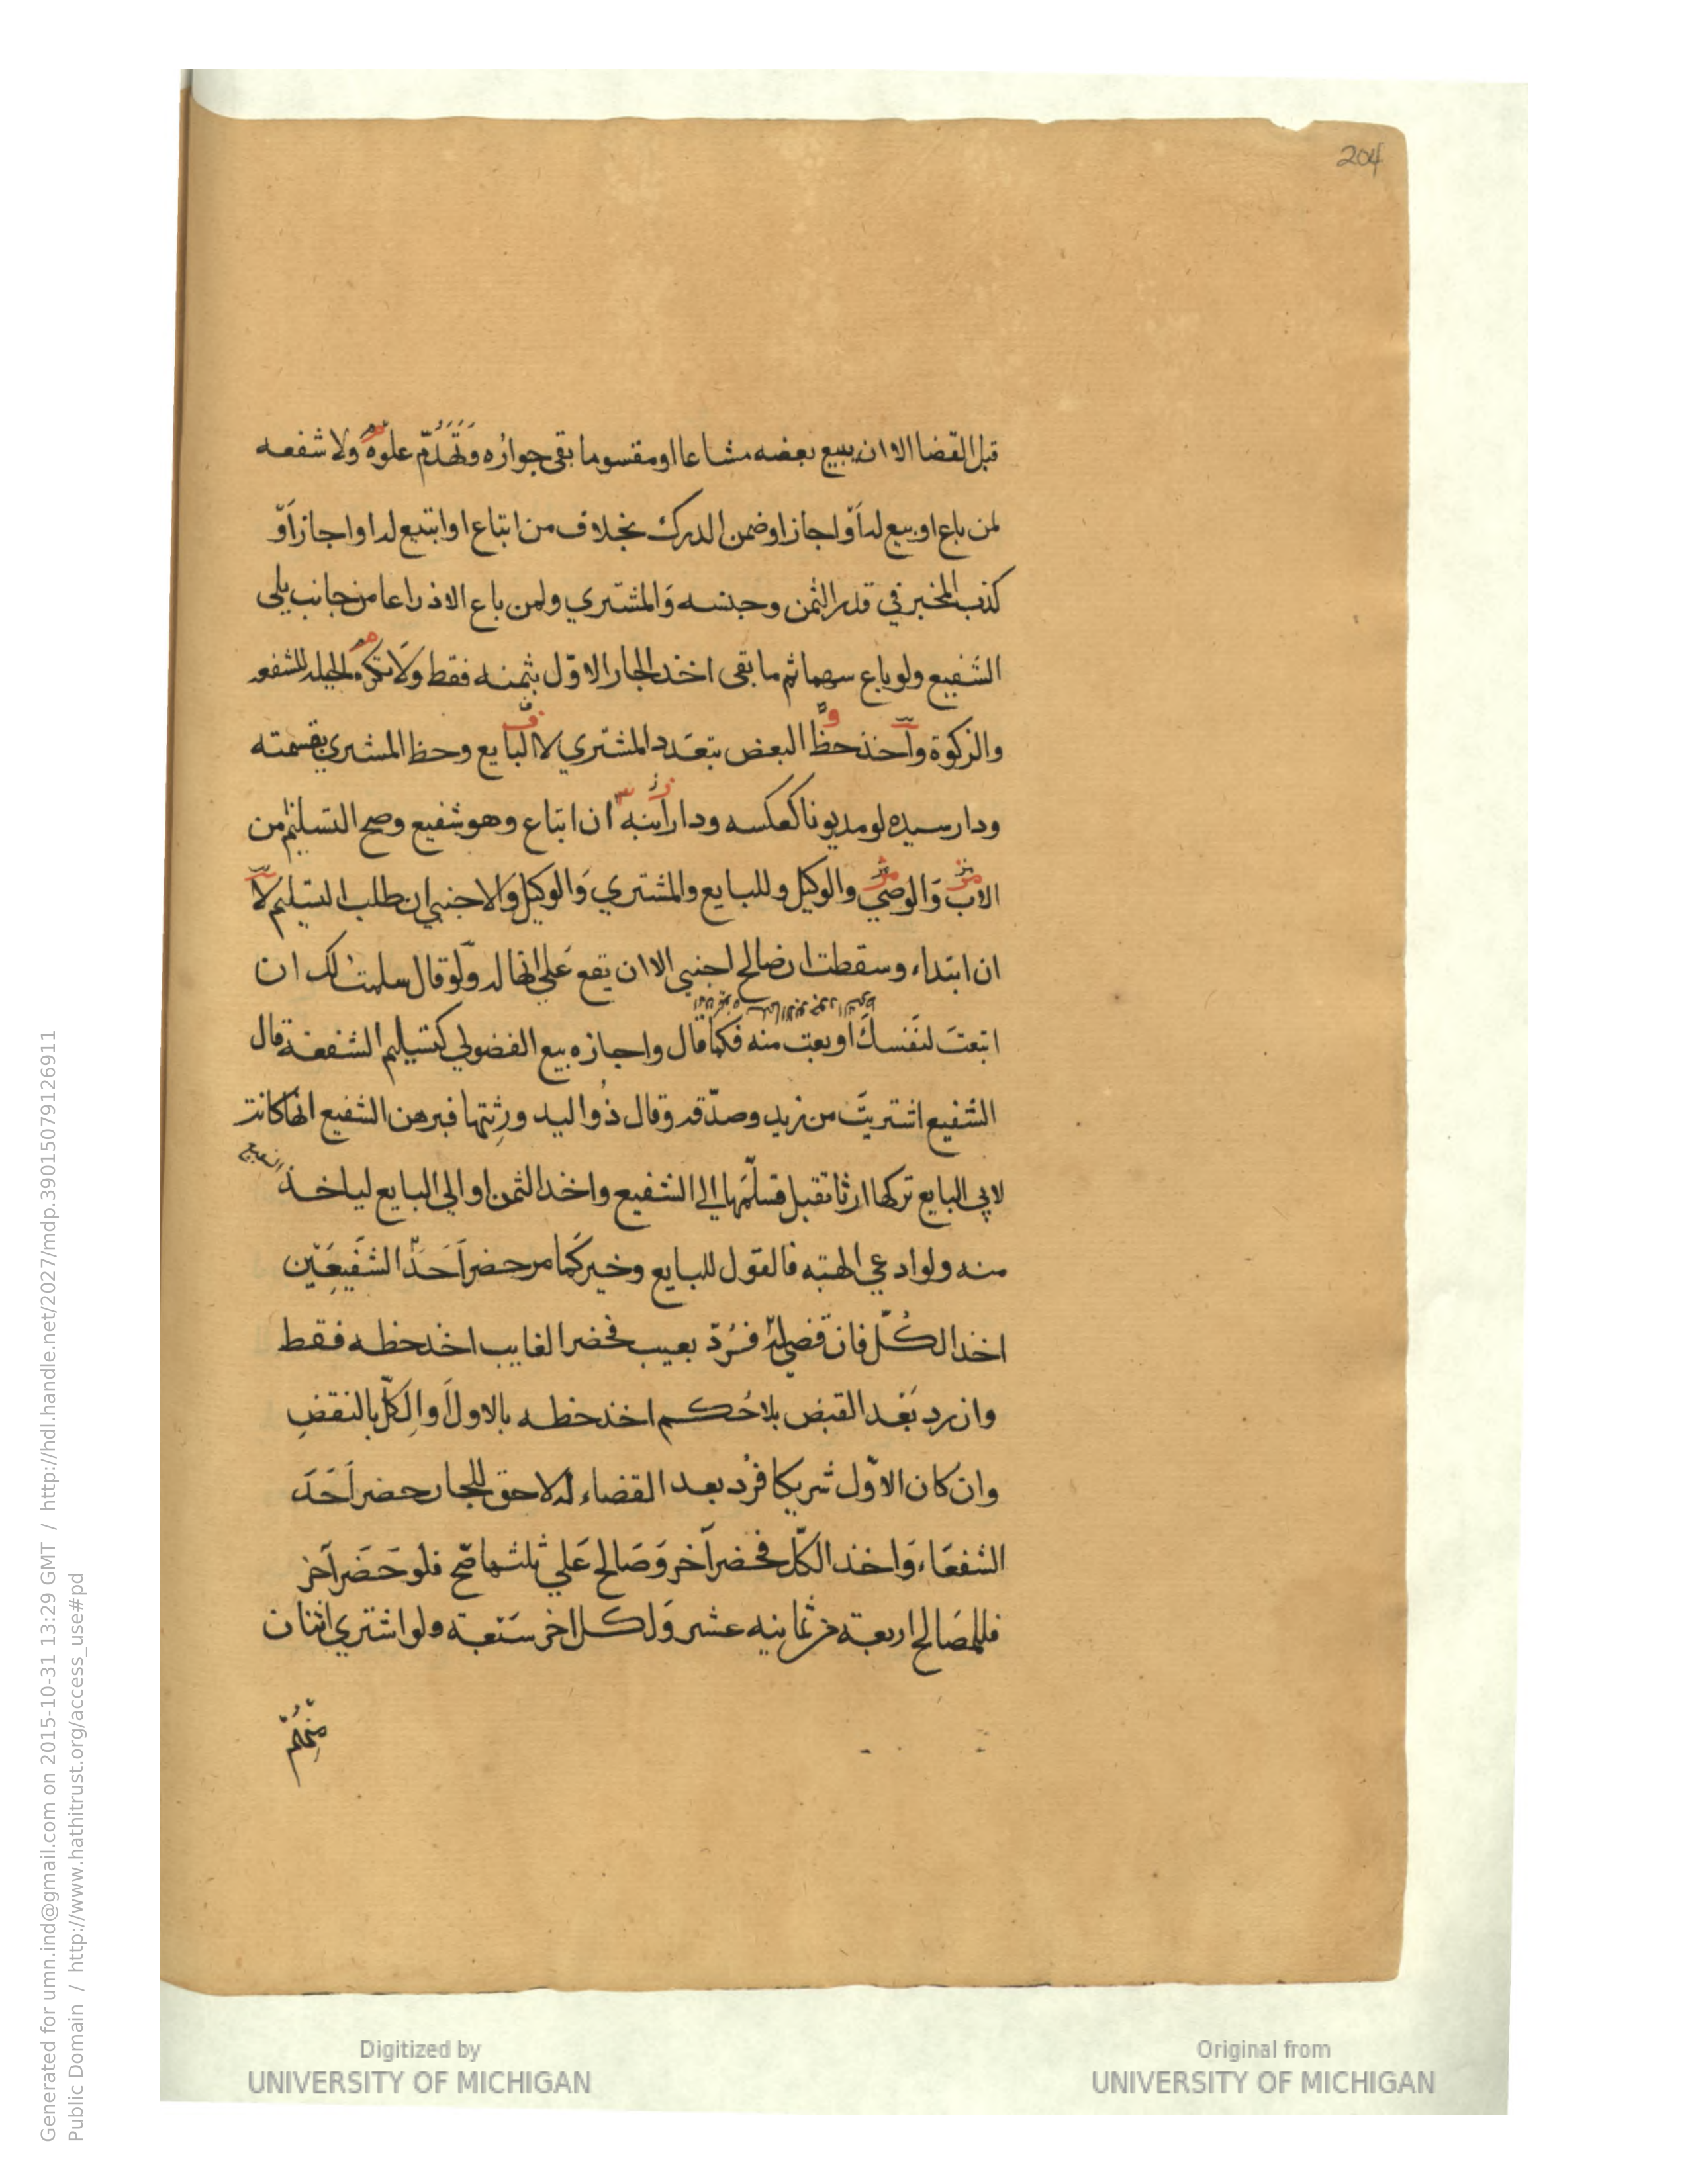 204
قبل القضا الا ان يبيع بعضه مشاعا او مقسوما بقى جواره وتَهَدُّم علوه ولا شفعه
لمن باع او بيع له او اجاز او ضمن الدرك بخلاف من ابتاع او ابتيع له او اجاز او
كذب المخبر في قدر الثمن وجنسه والمشتري ولمن باع الا ذراعا من جانب يلى
الشفيع ولو باع سهما ثم ما بقى اخذ الجار الاوّل بثمنه فقط ولا تكره الحيله للشفعه
والزكوة واخذ حظ البعض بتعدد المشتري لا البايع وحظ المشتري بقسمته
ودار سيده لو مديونا كعكسه ودار ابنه ان ابتاع وهو شفيع وصح التسليم من
الاب والوصي والوكيل وللبايع والمشتري والوكيل والاجنبي ان طلب التسليم لا
ان ابتداء وسقطت ان صالح اجنبي الا ان يقع على انها له ولو قال سلمت لك ان
ابتعتَ لنَفسكَ او بعت منه فكما قال واجازه بيع الفضولي كتسليم الشفعة قال
الشفيع اشتريتَ من زيد وصدّقه وقال ذُوا اليد ورثتها فبرهن الشفيع انها كانت
لابي البايع تركها ارثا تقبل فسلّمها الى الشفيع واخذ الثمن او الي البايع لياخذ الشفيع
منه ولو ادعي الهبته فالقول للبايع وخير كما مر حضر اَحَدُ الشَفيعَيْن
اخذ الكُلّ فان قضي له فَرُدّ بعيب فحضر الغايب اخذ حظه فقط
وان رد بَعْد القبض بلا حُكم اخذ حظه بالاول او الكلّ بالنقض
وان كان الاوّل شريكا فرُد بعد القضاء له لا حق للجار حضر اَحَدَ
الشفعَاء وَاخذ الكلّ فحضر آخر وَصَالح عَلي ثلثها صح فلو حَضَر آخر
فللمصَالح اربعة من ثمانيه عشر وَلكل اخر سَبْعة ولو اشتري اثنان